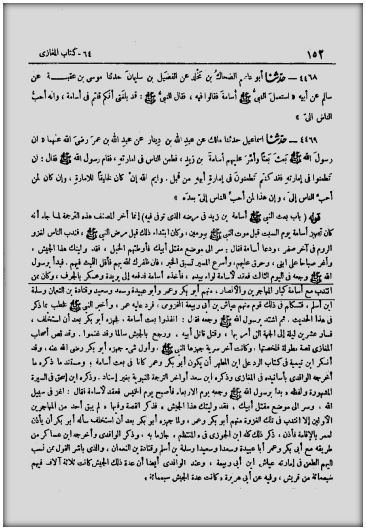 ١٥٢ ٦٤ - كتاب المغازى
٤٤٦٨ - حدثنا أبو عاصم الضحاك بن مخلد عن الفضيل بن سليمان حدثنا موسى بن عقبة عن
سالم عن أبيه « استعمل النبي ﷺ أسامة فقالوا فيه ، فقال النبي ﷺ : قد بلغنى أنكم قلتم فى أسامة ، وإنه أحبُّ
الناس إلىّ »
٤٤٦٩ - حدثنا إسماعيل حدثنا مالك عن عبد الله بن دينار عن عبد الله بن عمر رضى الله عنهما « أن
رسول الله ﷺ بعث بعثا وأمّر عليهم أسامة بن زيد ، فطعن الناس فى إمارته ، فقام رسول الله ﷺ فقال : إن
تطعنوا فى إمارته فقد كنتم تطعنون فى إمارة أبيه من قبل . وايم الله إن كان لخليقا للإمارة ، وإن كان لمن
أحبِّ الناس إلىّ ، وإن هذا لمن أحبِّ الناس إلىّ بعده »
قوله ( باب بعث النبي ﷺ أسامة بن زيد فى مرضه الذى توفى فيه ) إنما أخر المصنف هذه الترجمة لما جاء أنه
كان تجهيز أسامة يوم السبت قبل موت النبي ﷺ بيومين ، وكان ابتداء ذلك قبل مرض النبي ﷺ ، فندب الناس لغزو
الروم فى آخر صفر ، ودعا أسامة فقال : سر إلى موضع مقتل أبيك فأوطئهم الخيل ، فقد وليتك هذا الجيش ،
وأغر صباحا على ابنى ، وحرق عليهم ، وأسرع المسير تسبق الخبر ، فان ظفرك الله بهم فأقل اللبث فيهم . فبدأ برسول
الله ﷺ وجعه فى اليوم الثالث فعقد لأسامة لواء بيده ، فأخذه أسامة فدفعه إلى بريدة وعسكر بالجرف ، وكان ممن
انتدب مع أسامة كبار المهاجرين والأنصار ، منهم أبو بكر وعمر وأبو عبيدة وسعد وسعيد وقتادة بن النعمان وسلمة
ابن أسلم . فتكلم فى ذلك قوم منهم عياش بن أبى ربيعة المخزومى ، فرد عليه عمر ، وأخبر النبي ﷺ فخطب بما ذكر
فى هذا الحديث . ثم اشتد برسول الله ﷺ وجعه فقال : أنفذوا بعث أسامة ، فجهزه أبو بكر بعد أن استخلف ،
فسار عشرين ليلة إلى الجهة التى أمر بها ، وقتل قاتل أبيه ، ورجع بالجيش سالما وقد غنموا . وقد قص أصحاب
المغازى قصة مطولة فلخصتها ، وكانت آخر سرية جهزها النبي ﷺ ، وأول شىء جهزه أبو بكر رضى الله عنه ، وقد
أنكر ابن تيمية فى كتاب الرد على ابن المطهر أن يكون أبو بكر وعمر كانا فى بعث أسامة ، ومستند ما ذكره ما
أخرجه الواقدى بأسانيده فى المغازى وذكره ابن سعد أواخر الترجمة النبوية بغير إسناد ، وذكره ابن إسحق فى السيرة
المشهورة ولفظه « بدأ برسول الله ﷺ وجعه يوم الأربعاء فأصبح يوم الخميس فعقد لأسامة فقال : اغز فى سبيل
الله ، وسر إلى موضع مقتل أبيك ، فقد وليتك هذا الجيش ، فذكر القصة وفيها « لم يبق أحد من المهاجرين
الأولين إلا انتدب فى تلك الغزوة منهم أبو بكر وعمر ، ولما جهزه أبو بكر بعد أن استخلف سأله أبو بكر أن يأذن
لعمر بالإقامة فأذن ، ذكر ذلك كله ابن الجوزى فى « المنتظم ، جازما به ، وذكر الواقدى وأخرجه ابن عساكر من
طريقه مع أبى بكر وعمر أبا عبيدة وسعدا وسعيدا وسلمة بن أسلم وقتادة بن النعمان ، والذى باشر القول ممن نسب
إليهم الطعن فى إمارته عياش ابن أبى ربيعة ، وعند الواقدى أيضا أن عدة ذلك الجيش كانت ثلاثة آلاف فيهم
سبعمائة من قريش ، وفيه عن أبى هريرة « كانت عدة الجيش سبعمائة »